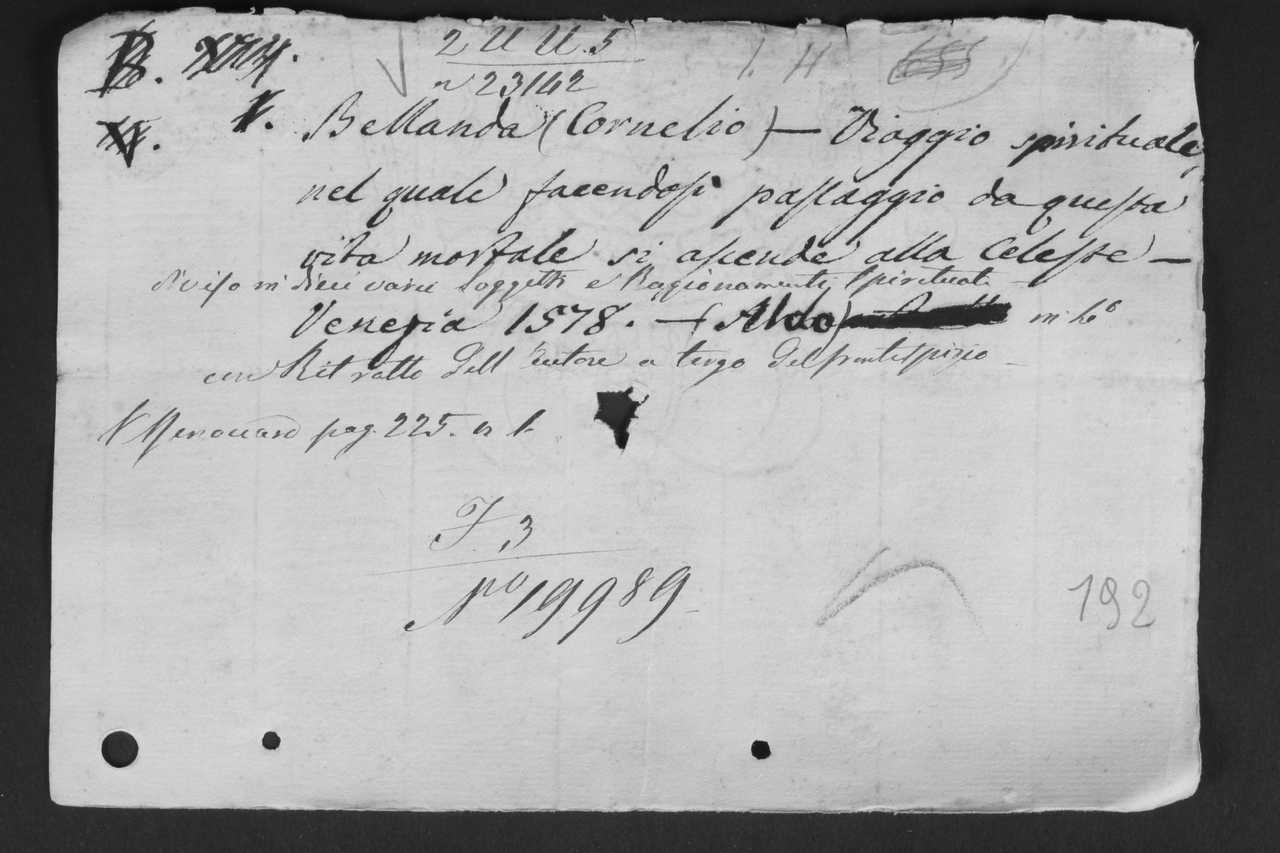 2 U U. 5
n 23142
1. H
Bellanda (Cornelio) — Viaggio spirituale,
nel quale facendosi passaggio da questa
vita mortale si ascende alla Celeste —
diviso in dieci varii soggetti e Ragionamenti spirituali
Venezia 1578. — (Aldo) in 4o
con Ritratto dell'Autore a tergo del frontespizio —
V Renouard pag. 225. n 1.
F. 3
No 19989
192